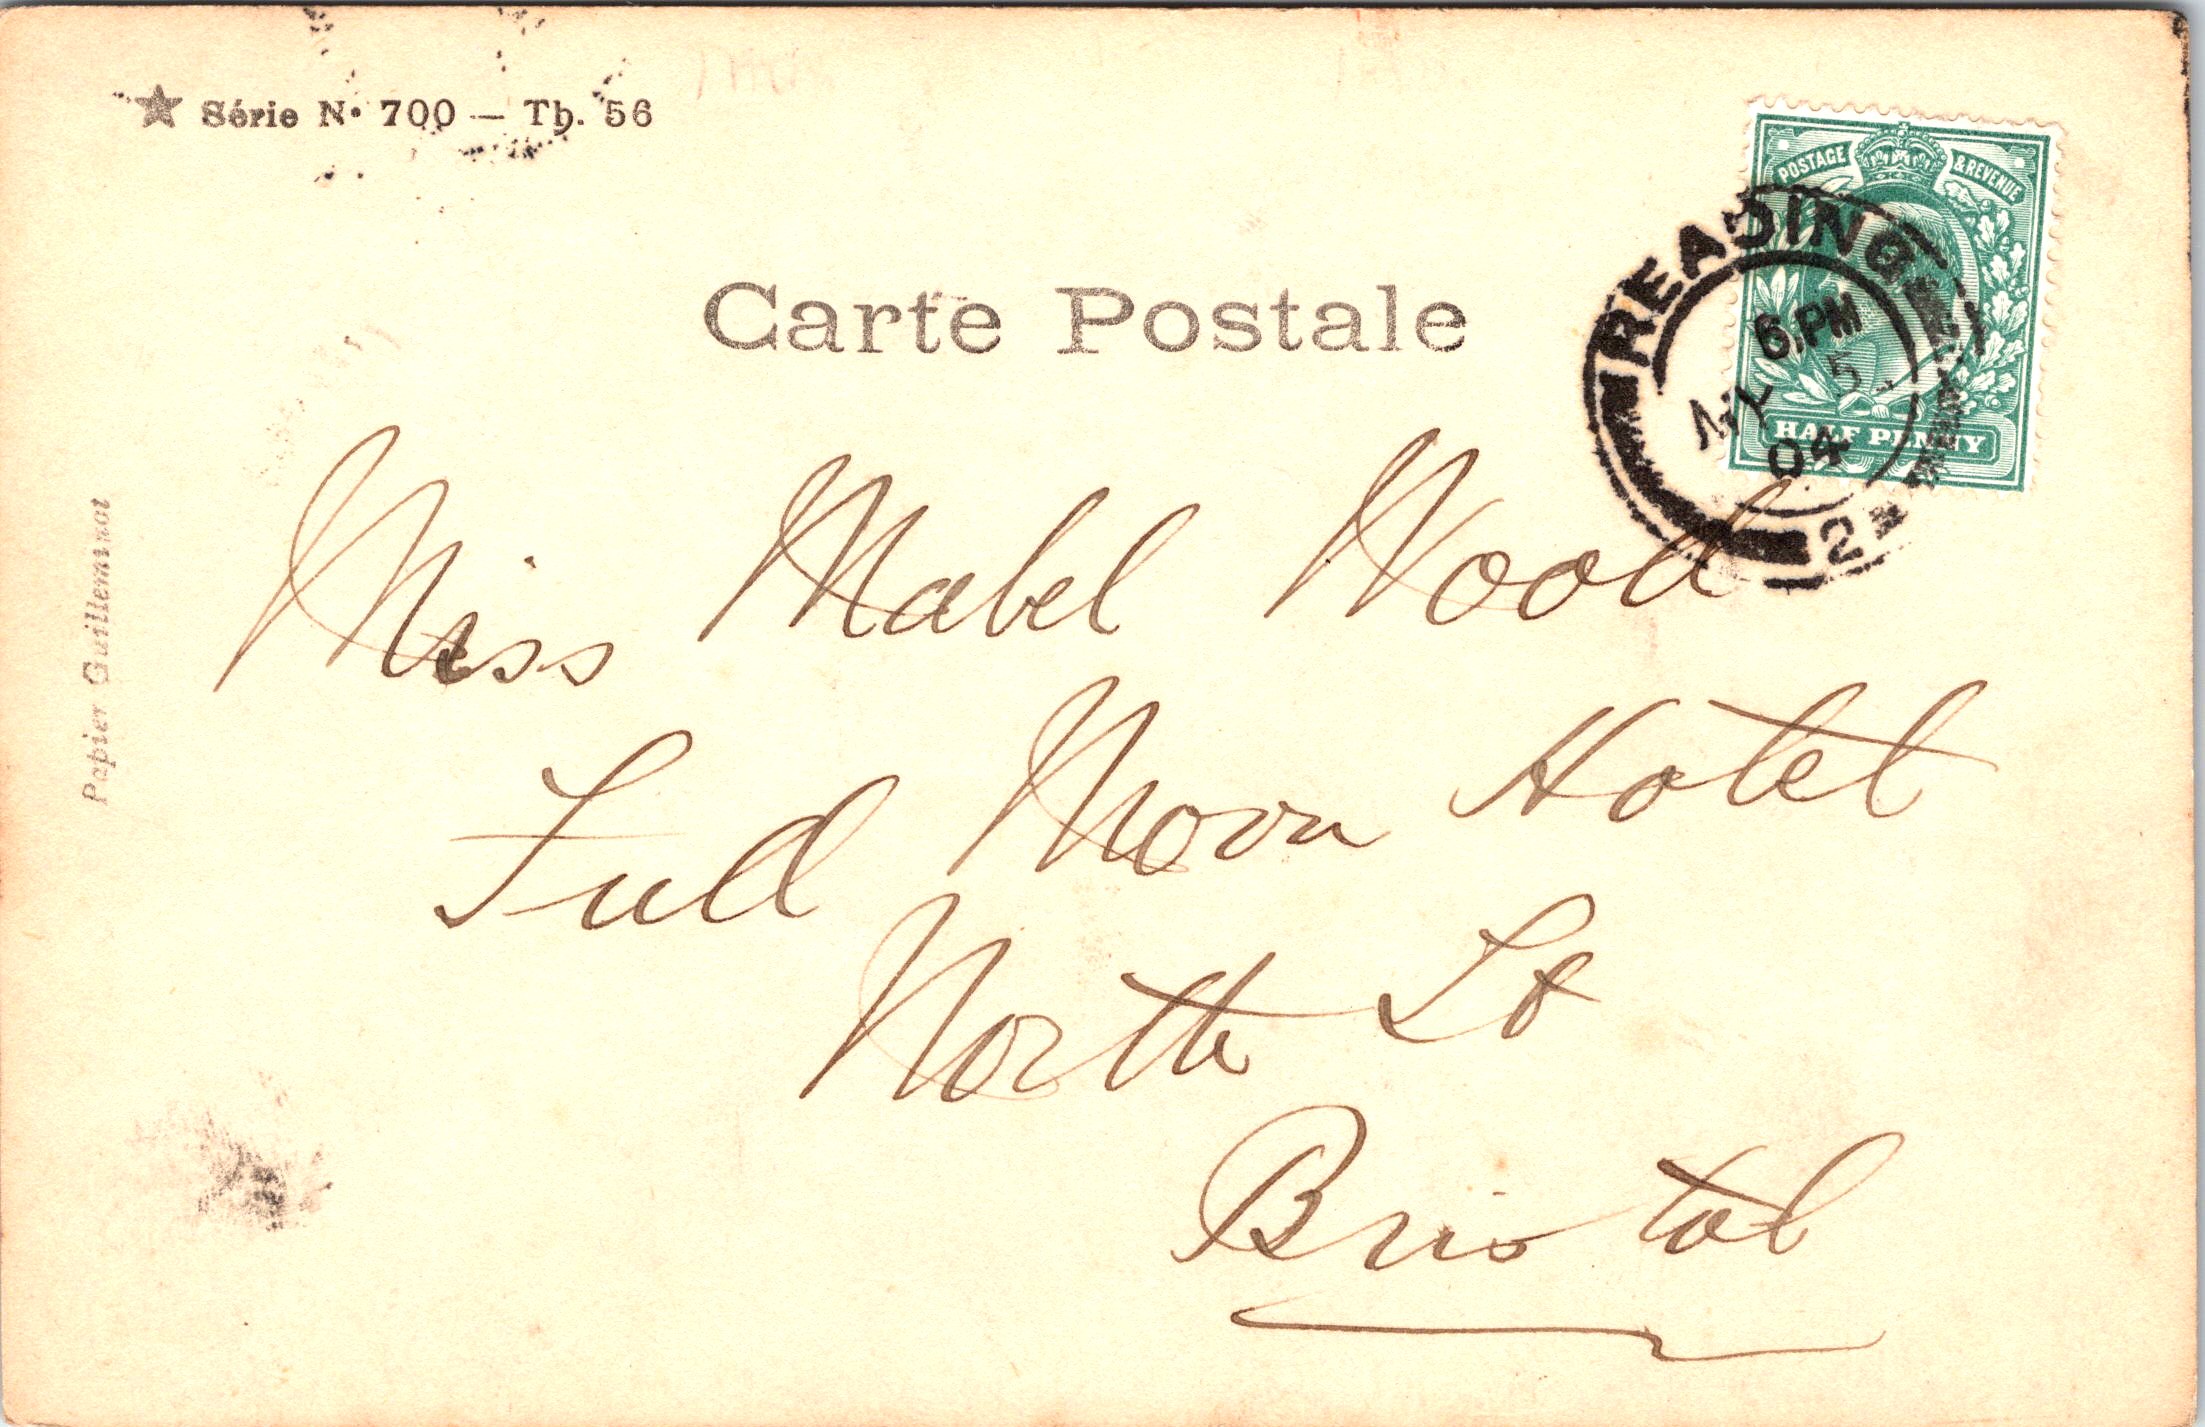 ★ Série N• 700 — Th. 56
POSTAGE & REVENUE
Carte Postale
READING
6. PM
5
04
2
HALF PENNY
Papier Guilleminot
Miss Mabel Wood
Full Moon Hotel
North St
Bristol